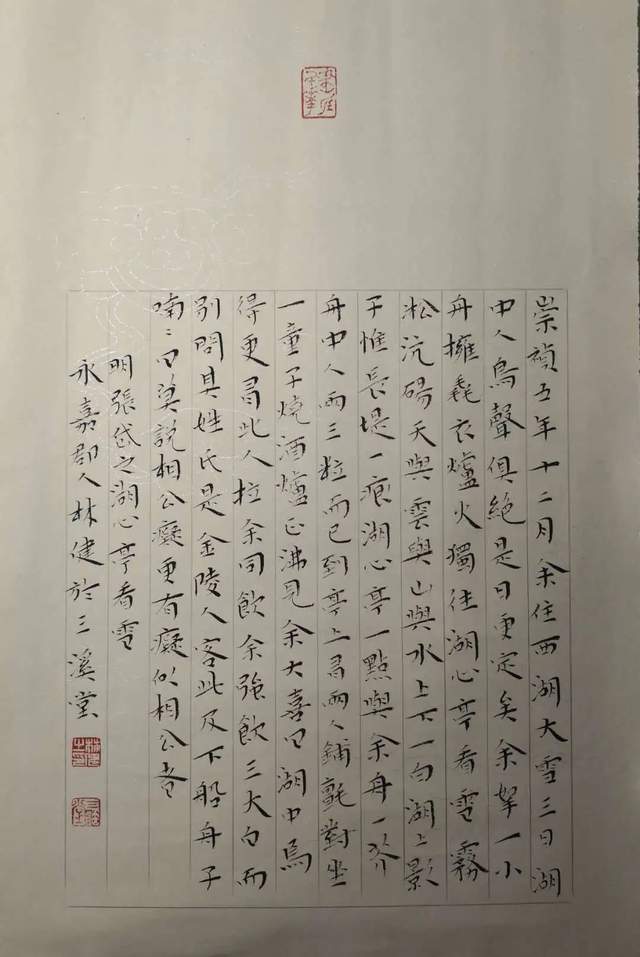 崇禎五年十二月余住西湖大雪三日湖
中人鳥聲俱絕是日更定矣余拏一小
舟擁毳衣爐火獨往湖心亭看雪霧
淞沆碭天與雲與山與水上下一白湖上影
子惟長堤一痕湖心亭一點與余舟一芥
舟中人兩三粒而已到亭上有兩人鋪氈對坐
一童子燒酒爐正沸見余大喜曰湖中焉
得更有此人拉余同飲余強飲三大白而
別問其姓氏是金陵人客此及下船舟子
喃〻曰莫說相公癡更有癡似相公者
明張岱之湖心亭看雪
永嘉郡人林建於三溪堂